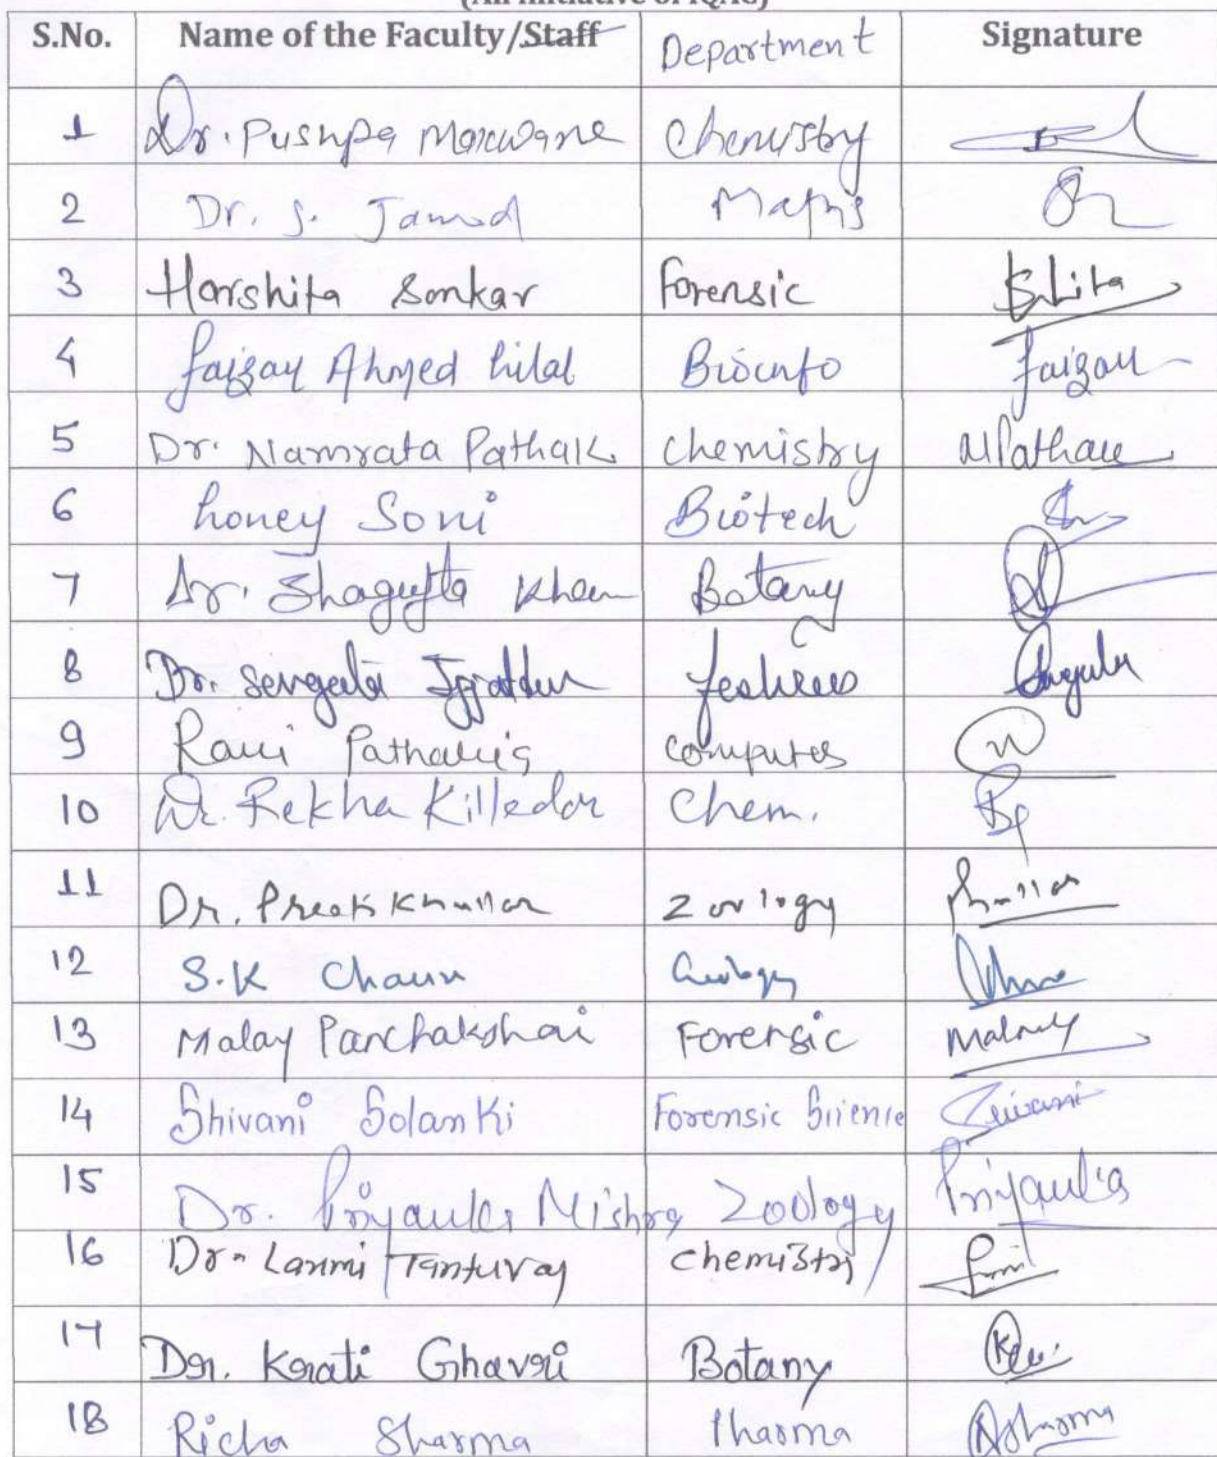 (An initiative of IQAC)
S.No. Name of the Faculty/Staff Department Signature
1 Dr. Pushpa Marwane Chemistry
2 Dr. S. Jamod Maths
3 Harshita Sonkar Forensic
4 faizan Ahmed hilal Bioinfo Faizan
5 Dr. Namrata Pathak Chemistry NPathak
6 honey Soni Biotech
7 Dr. Shagufta Khan Botany
8 Dr. Sangeeta
9 Ravi Computer
10 Dr. Rekha Killedar Chem.
11 Dr. Preeti Khallar Zoology
12 S.K
13 Malay Panchakshai Forensic Malay
14 Shivani Solanki Forensic Science Shivani
15 Dr. Priyanka Mishra Zoology Priyanka
16 Dr. Laxmi Tantuvay chemistry
17 Dr. Kirati Ghavri Botany
18 Richa Sharma Pharma RSharma